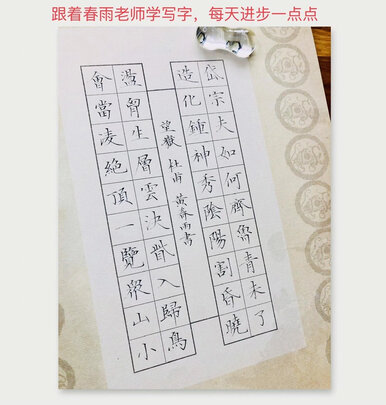 跟着春雨老师学写字，每天进步一点点
岱宗夫如何齊魯青未了
造化鍾神秀陰陽割昏曉
望嶽 杜甫 黄春雨書
盪胷生層雲決眥入歸鳥
會當凌絶頂一覽衆山小